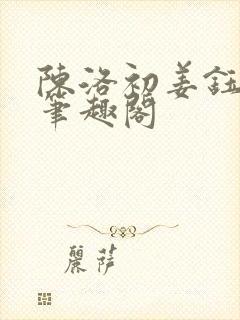 陳洛初姜鈺
筆趣閣
麗萨